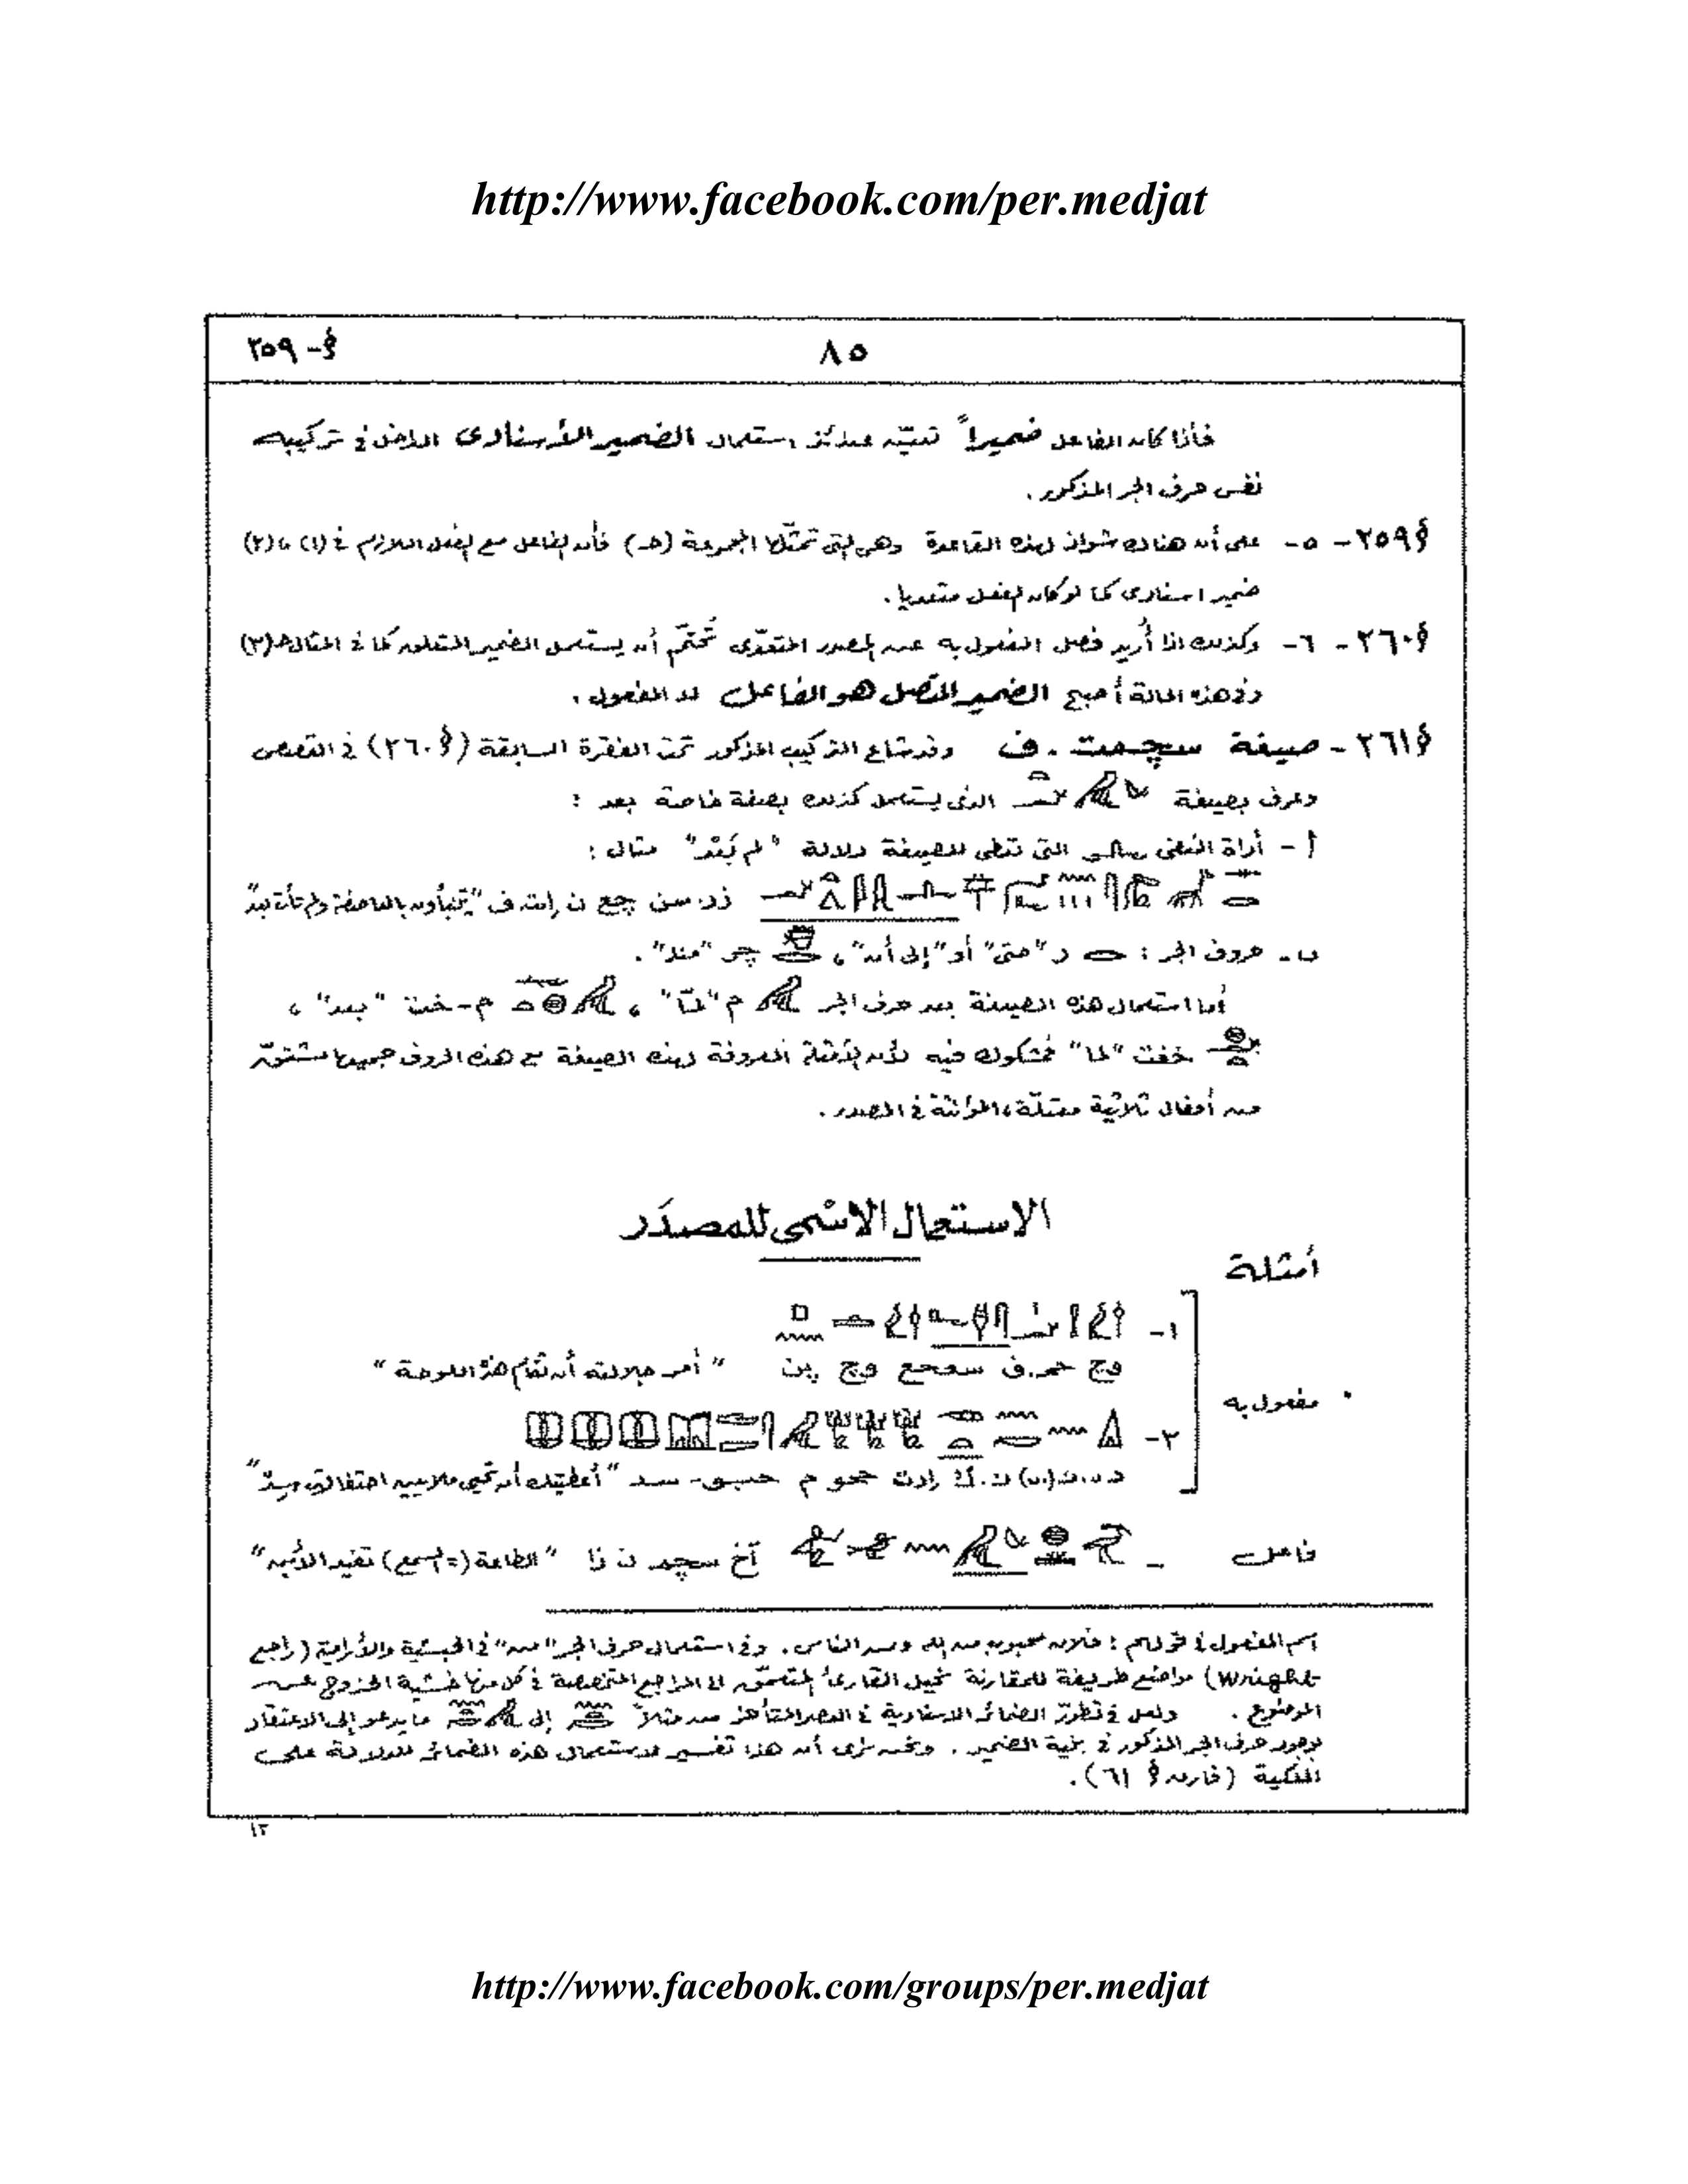 http://www.facebook.com/per.medjat
§ - ٢٥٩
٨٥
فأذا كان الفاعل ضميراً تعيّن عندئذ استعمال الضمير الأسنادى الداخل فى تركيبه
نفس حرف الجر المذكور .
§٢٥٩ - ٥ - على أن هناك شواذ لهذه القاعدة وهى التى تمثّلها المجموعة (حـ) فأن الفاعل مع الفعل اللازم فى (١) ، (٢)
ضمير اسنادى كما لو كان الفعل متعديا .
§٢٦٠ - ٦ - وكذلك اذا أُريد فصل المفعول به عن المصدر المتعدّى تُحتّم أن يستعمل الضمير المتعلق كما فى المثال (٣)
وفى هذه الحالة أصبح الضمير المتصل هو الفاعل لا المفعول .
§٢٦١ - صيغة سچمت . ف وقد شاع التركيب المذكور تحت الفقرة السابقة (§٢٦٠) فى القصص
وعرف بصيغة الذى يستعمل كذلك بصفة خاصة بعد :
أ - أداة النفى التى تعطى للصيغة دلالة "لم بَعْد" مثال :
ذد . سن چع ن إيت ف "يتنبأون بالعاصفة ولم تأت بعدُ"
ب - حروف الجر : ر "حتى" أو "إلى أن" ، چر "منذ" .
أما استعمال هذه الصيغة بعد حرف الجر م "لمّا" ، م - خت "بعد" ،
خفت "لما" فمشكوك فيه لأن الأمثلة المعروفة لهذه الصيغة مع هذه الحروف جميعها مشتقّة
من أفعال ثلاثية معتلّة ، المؤنثة فى المصدر .
الاستعمال الاسْمى للمصدَر
أمثلة
١ -
وچ حم . ف سعحع وچ پن "أمر جلالته أن تقام هذه اللوحة"
مفعول به
٢ -
د . ن . (ن) ن . ك إرت ححو م حب - سد "أعطيتك أن تحيى ملايين احتفالات سِدْ"
فاعل - آخ سچم ن ذا "الطاعة (= السمع) تفيد الأبن"
اسم المفعول فى قولهم : فلان محبوب من الله ومن الناس . وفى استعمال حرف الجر "من" فى الحبشية والأرامية (راجع
Wright) مواضع طريفة للمقارنة نحيل القارئ المتعمّق الى المراجع المتخصصة فى كل منها خشية الخروج عن
الموضوع . ولعل فى تطوّر الضمائر الاسنادية فى العصر المتأخر من مثلاً إلى ما يدعو إلى الاعتقاد
بوجود حرف الجر المذكور فى بنية الضمير . ونحن نرى أن هذا تفسير لاستعمال هذه الضمائر للدلالة على
الملكية (قارن § ٦١) .
١٢
http://www.facebook.com/groups/per.medjat